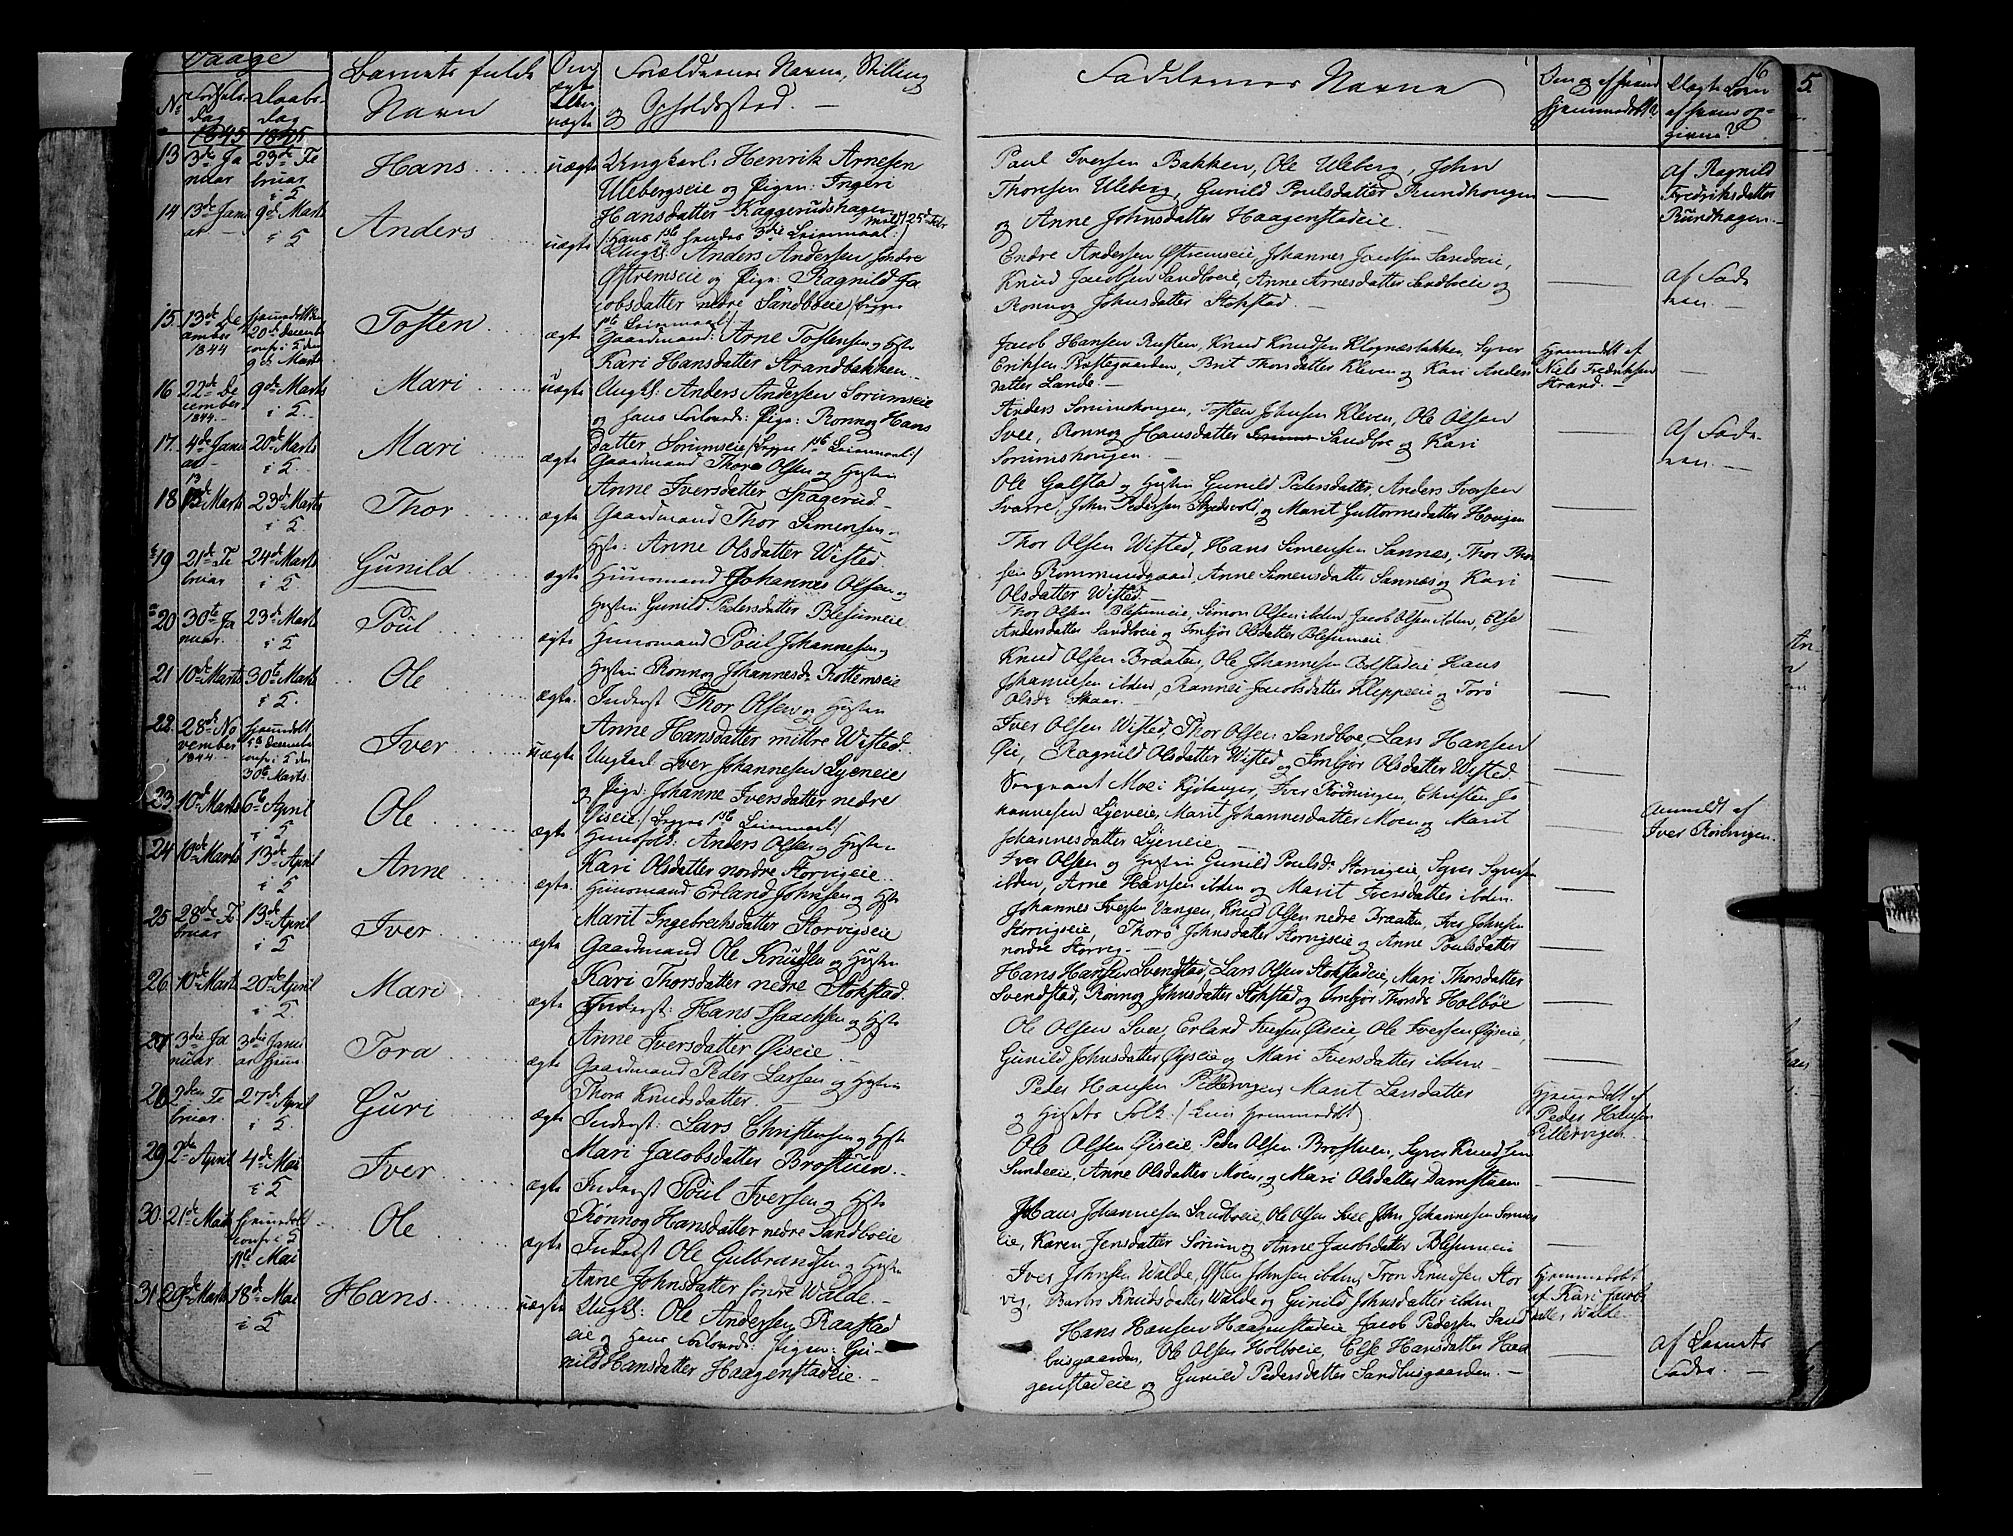 Vaage
No
Fødsels-
dag
1845
Daabs-
dag
1845
Barnets fulde
Navn
Om
ægte
eller
uægte
Forældrenes Navne, Stilling
og Opholdssted. —
Faddernes Navne
16
5.
13 3de Ja
nuar
23de Fe
bruar
i 5
Hans
uægte
Ungkarl: Henrik Arnesen
Ulebergseie og Pigen: Ingeri
Hansdatter Kaggerudshagen
Paul Iversen Bakken, Ole Uleberg, John
Thoresen Uleberg, Gunild Poulsdatter Rundhougen
og Anne Johnsdatter Haagenstadeie.
Af Ragnild
Fredriksdatter
Rundhagen
14 13de Janu
ar
9de Marts
i 5
Anders
uægte
Ungk: Anders Andersen søndre
Østremseie og Pige: Ragnild Ja
cobsdatter nedre Sandboeie
1ste Leiermaal
Endre Andersen Østremseie, Johannes Jacobsen Sandboeie,
Knud Jacobsen Sandboeie, Anne Arnesdatter Sandboeie og
Ronnog Johnsdatter Stokstad.
Af Fade
ren.
15. 13de De
cember
1844
20de December
conf: i 5 den
9de Marts
Tosten
ægte
Gaardmand: Arne Tostensen og Hstr
Kari Hansdatter Strandbakken
Jacob Hansen Rusten, Knud Knudsen Klognæsbakken, Syver
Eriksen Præstegaarden, Brit Thorsdatter Kleven og Kari Anders
datter Lande
Hjemmedøbt af
Niels Fredriksen
Strand.
16 22de De
cember
1844.
9de Marts
i 5.
Mari
uægte
Ungk: Anders Andersen Sorumseie
og hans Forlovede: Pige: Ronnog Hans
datter Sorumseie (Begges 1ste Leiermaal)
Anders Sorumshougen, Tosten Johnsen Kleven, Ole Olsen
Svee, Ronnog Hansdatter Sandboe og Kari
Sorumshougen.
Af Fade
ren.
17. 4de Janu
ar
20de Marts
i 5
Mari
ægte
Gaardmand Thore Olsen og Hustru
Anne Iversdatter Spagerud
Ole Galstad og Hustru Gunild Pedersdatter, Anders Iversen
Svarre, John Pedersen Stadsvold, og Marit Guttormsdatter Hougen
18 13de Marts
23de Marts
i 5
Thor
ægte
Gaardmand Thor Simensen
Hstr: Anne Olsdatter Wisted
Thor Olsen Wisted, Hans Simensen Sannæs, Thor Tho
sen Rommundgaard, Anne Simensdatter Sannæs og Kari
Olsdatter Wisted
19 21de Fe
bruar
24de Marts
i 5.
Gunild
ægte
Huusmand Johannes Olsen og
Hustru Gunild Pedersdatter Blesumeie
Thor Olsen Blesumeie, Simon Olsen ibden, Jacob Olsen ibden, Else
Andersdatter Sandboeie og Imbjør Olsdatter Blesumeie
20 30te Ja
nuar.
23de Marts
i 5
Poul
ægte
Huusmand Poul Johannesen og
Hustru Ronnog Johannesdr Kottemseie
Knud Olsen Braaten, Ole Johannesen Bolstadeie, Hans
Johannesen ibden, Rannei Jacobsdatter Kleppeeie og Torø
Olsdr Skaar
21 10de Marts
30te Marts
i 5.
Ole
ægte
Inderst Thor Olsen og Hustru
Anne Hansdatter mittre Wisted.
Iver Olsen Wisted, Thor Olsen Sandboe, Lars Hansen
Øie, Ragnild Olsdatter Wisted og Imbjør Olsdatter Wisted
22. 28de No
vember
1844
Hjemdøbt
5te December
conf: i 5 den
30te Marts
Iver
uægte
Ungkarl Iver Johannesen Lyeneie
og Pige: Johanne Iversdatter nedre
Øiseie (Begges 1ste Leiermaal)
Moe i Kjølanger, Iver Rødningen, Christen Jo
hannesen Lyeneie, Marit Johannesdatter Moen og Marit
Johannesdatter Lyeneie
Anmeldt af
Iver Rødningen
23 10de Marts
6te April
i 5
Ole
ægte
Huusfolk: Anders Olsen og Hustru
Kari Olsdatter nordre Storvigeie
Iver Olsen og Hustru Gunild Poulsdr Storvigeie, Syver Syversen
ibden, Arne Hansen ibden og Marit Iversdatter ibden.
24 10de Marts
13de April
i 5
Anne
ægte
Huusmand Erland Johnsen og Hstr
Marit Ingebrechtsdatter Storvigseie
Johannes Iversen Vangen, Knud Olsen nedre Braaten, Iver Johnsen
Storvigseie, Thorø Johnsdatter Storvigseie og Anne Poulsdatter
nordre Storvig
25 28de Fe
bruar
13de April
i 5
Iver
ægte
Gaardmand Ole Knudsen og Hustru
Kari Thorsdatter nedre Stokstad
Hans Hansen Svendstad, Lars Olsen Stokstadeie, Mari Thorsdatter
Svendstad, Rønnog Johnsdatter Stokstad og Imbjør Thorsdr Holbøe
26 10de Marts
20de April
i 5
Mari
ægte
Inderst: Hans Isaachsen og Hstr
Anne Iversdatter Øiseie
Ole Olsen Svee, Erland Iversen Øiseie, Ole Iversen Øyseie,
Gunild Johnsdatter Øyseie og Mari Iversdatter ibden
27 3die Ja
nuar
3die Janu
ar hjem
Tora
ægte
Gaardmand Peder Larsen og Hustru
Thora Knudsdatter
Peder Hansen Pillervigen, Marit Larsdatter
og Husets Folk (kun hjemmedøbt)
Hjemmedøbt af
Peder Hansen
Pillervigen
28 2den Fe
bruar
27de April
i 5.
Guri
ægte
Inderst: Lars Christensen og Hstr
Mari Jacobsdatter Brostuen
Ole Olsen Øiseie, Peder Olsen Brostuen, Syver Knudsen
Sundeeie, Anne Olsdatter Moen, og Mari Olsdatter Damstuen
29 2de April
4de Mai
i 5
Iver
ægte
Inderst Poul Iversen og Hstr
Rønnog Hansdatter nedre Sandboeie
Hans Johannesen Sandboeie, Ole Olsen Svee, John Johannesen Sorums
eie, Karen Jensdatter Sorum og Anne Jacobsdatter Blesumeie
30 21de Marts
Hjemdøbt
conf: i 5
11te Mai
Ole
ægte
Inderst Ole Gulbrandsen og Hustru
Anne Johnsdatter søndre Walde
Iver Johnsen Walde, Østen Johnsen ibden, Tron Knudsen Stor
vig, Barbro Knudsdatter Walde og Gunild Johnsdatter ibden
Hjemmedøbt
af Kari Jacobs
datter Walde
31 29de Marts
18de Mai
i 5
Hans
uægte
Ungk: Ole Andersen Raastad
eie og hans Forlovede: Pigen: Gu-
nild Hansdatter Haagenstadeie.
Hans Hansen Haagenstadeie, Jacob Pedersen Sand
busgaarden, Ole Olsen Holboeie, Else Hansdatter Haa
genstadeie og Gunild Pedersdatter Sandbusgaarden.
Af Barnets
Fader